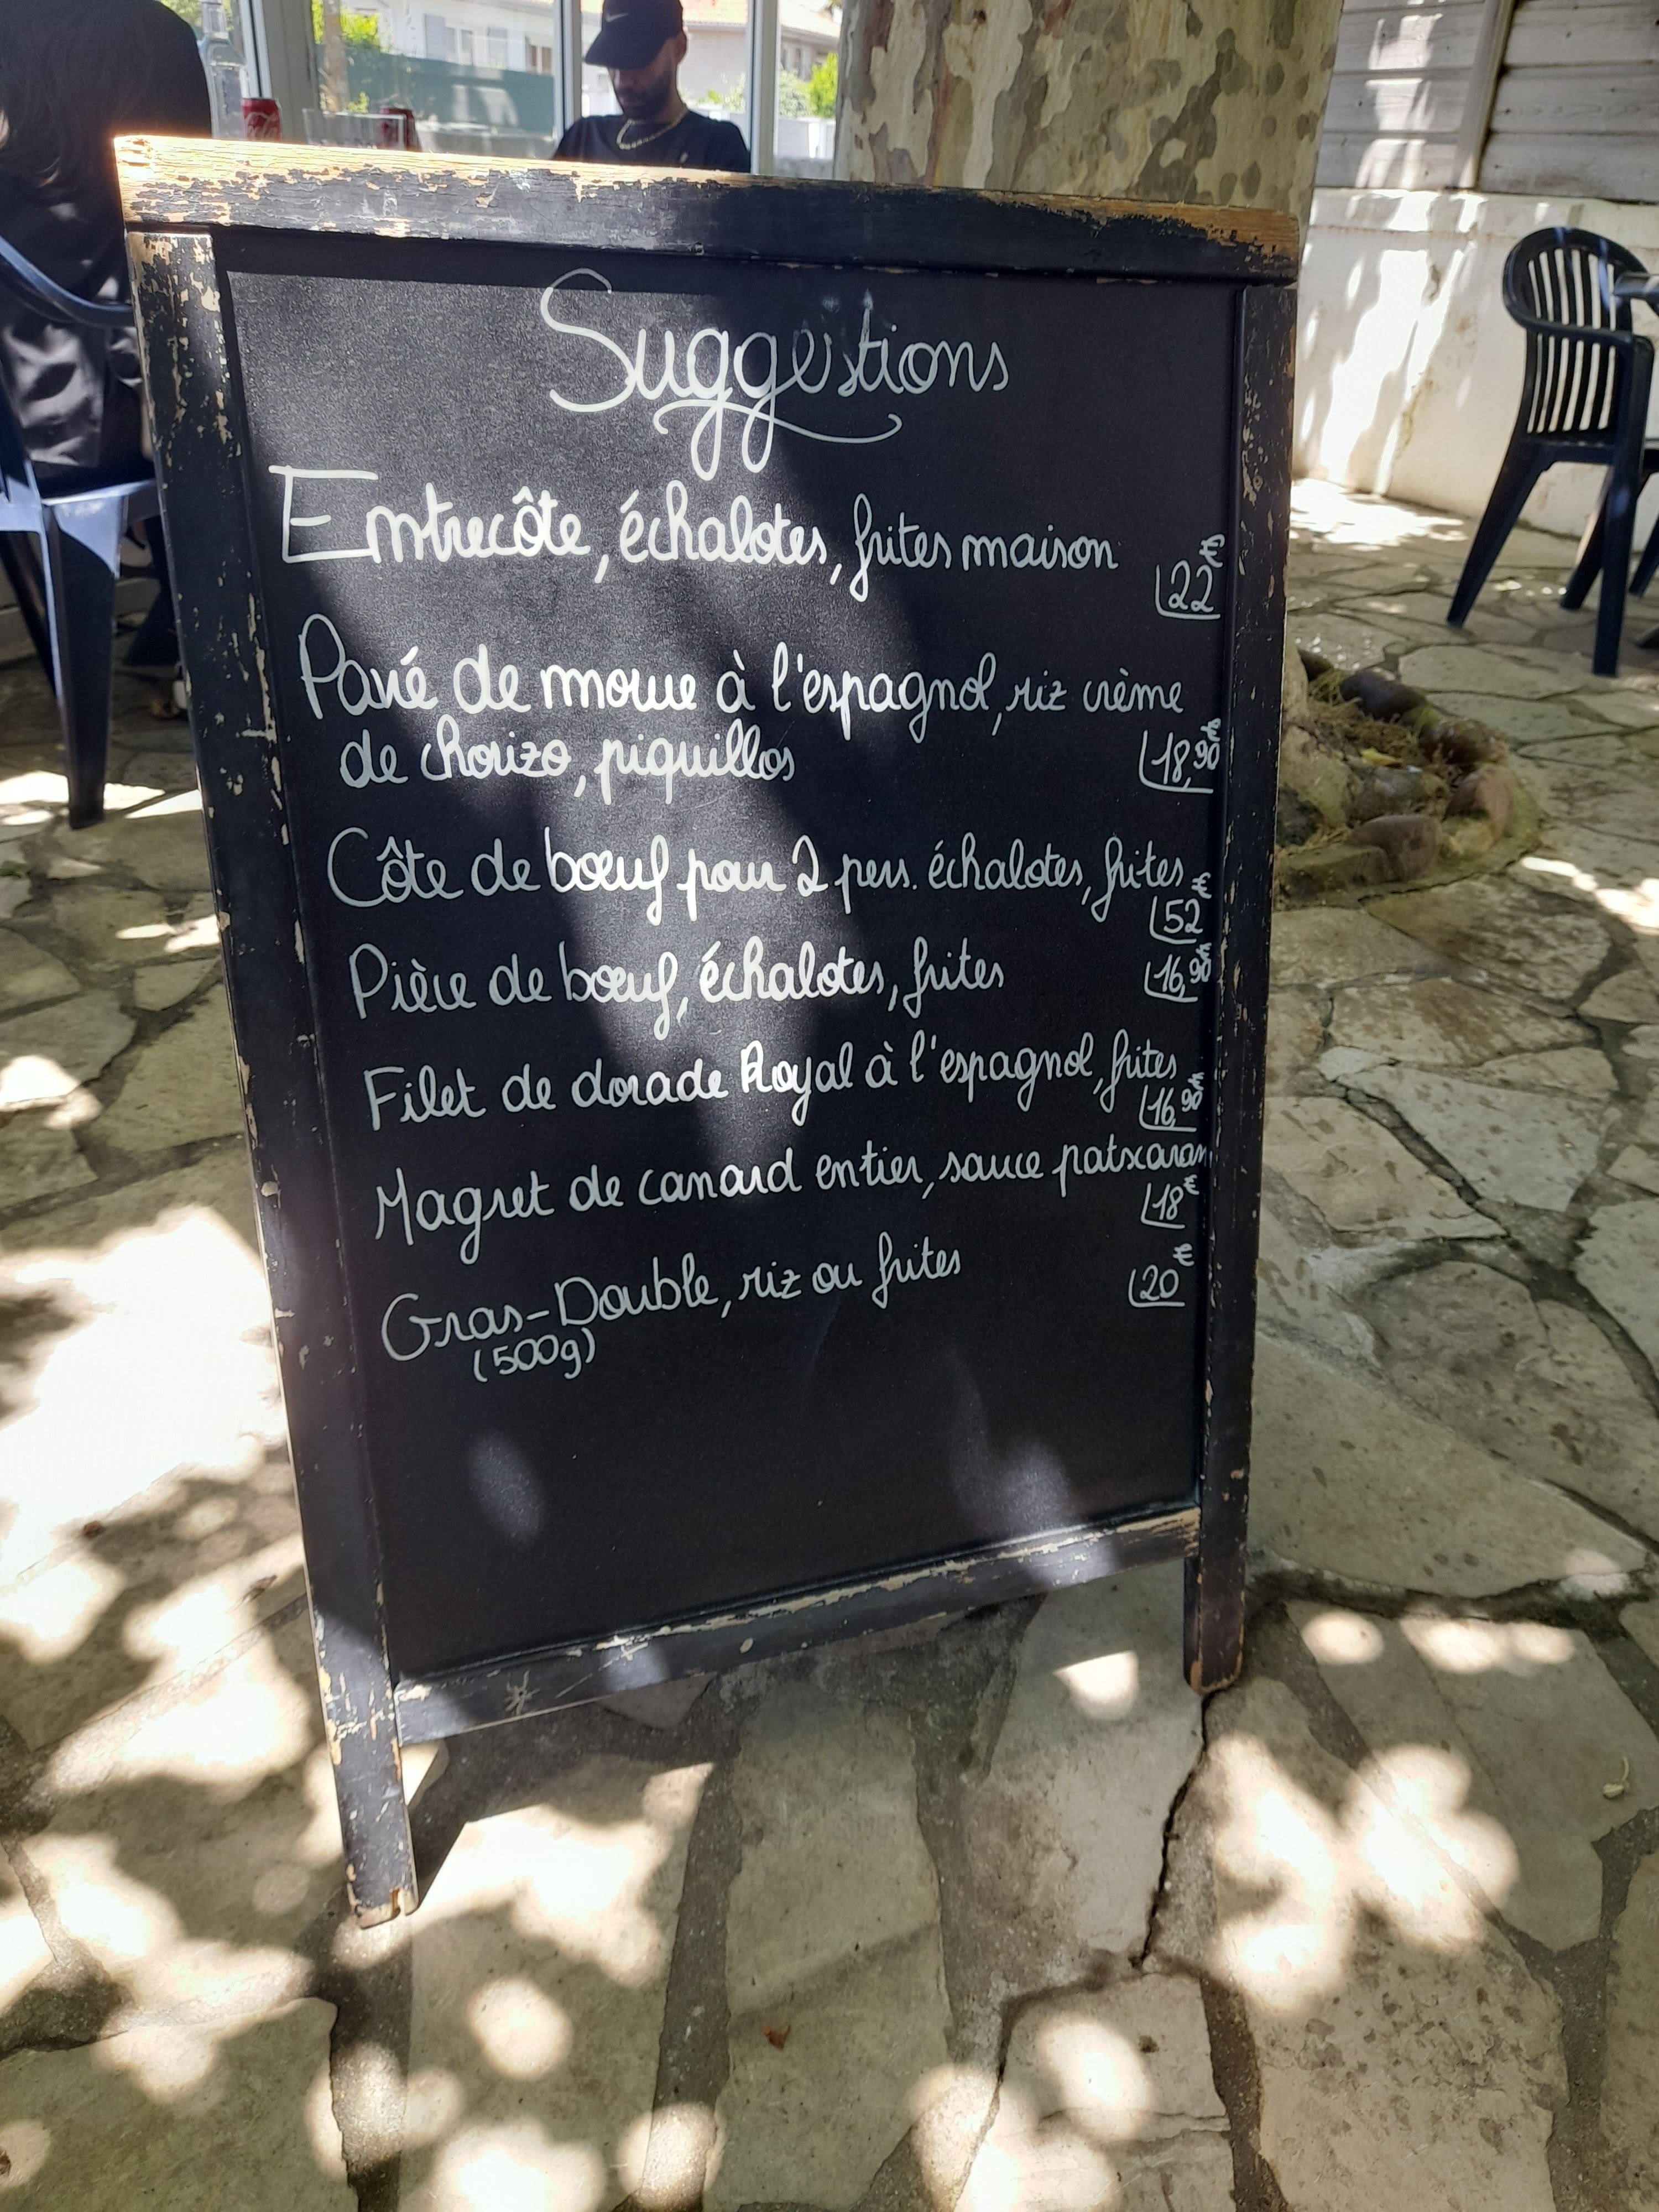 Suggestions
Entrecôte, échalotes, frites maison
22€
Pavé de morue à l'espagnol, riz crème
de chorizo, piquillos
18,90€
Côte de bœuf pour 2 pers. échalotes, frites
52€
Pièce de bœuf, échalotes, frites
16,90€
Filet de dorade Royal à l'espagnol, frites
16,90€
Magret de canard entier, sauce patxaran
18€
Gras-Double, riz ou frites
20€
(500g)